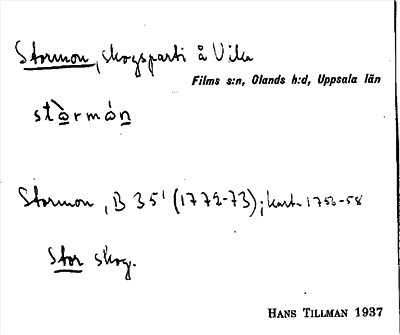 Stormon, skogsparti å Vika
Films s:n, Olands h:d, Uppsala län
stò̱rmóṉ
Stormon, B 35¹ (1772-73); kart. 1756-58
Stor skog.
HANS TILLMAN 1937